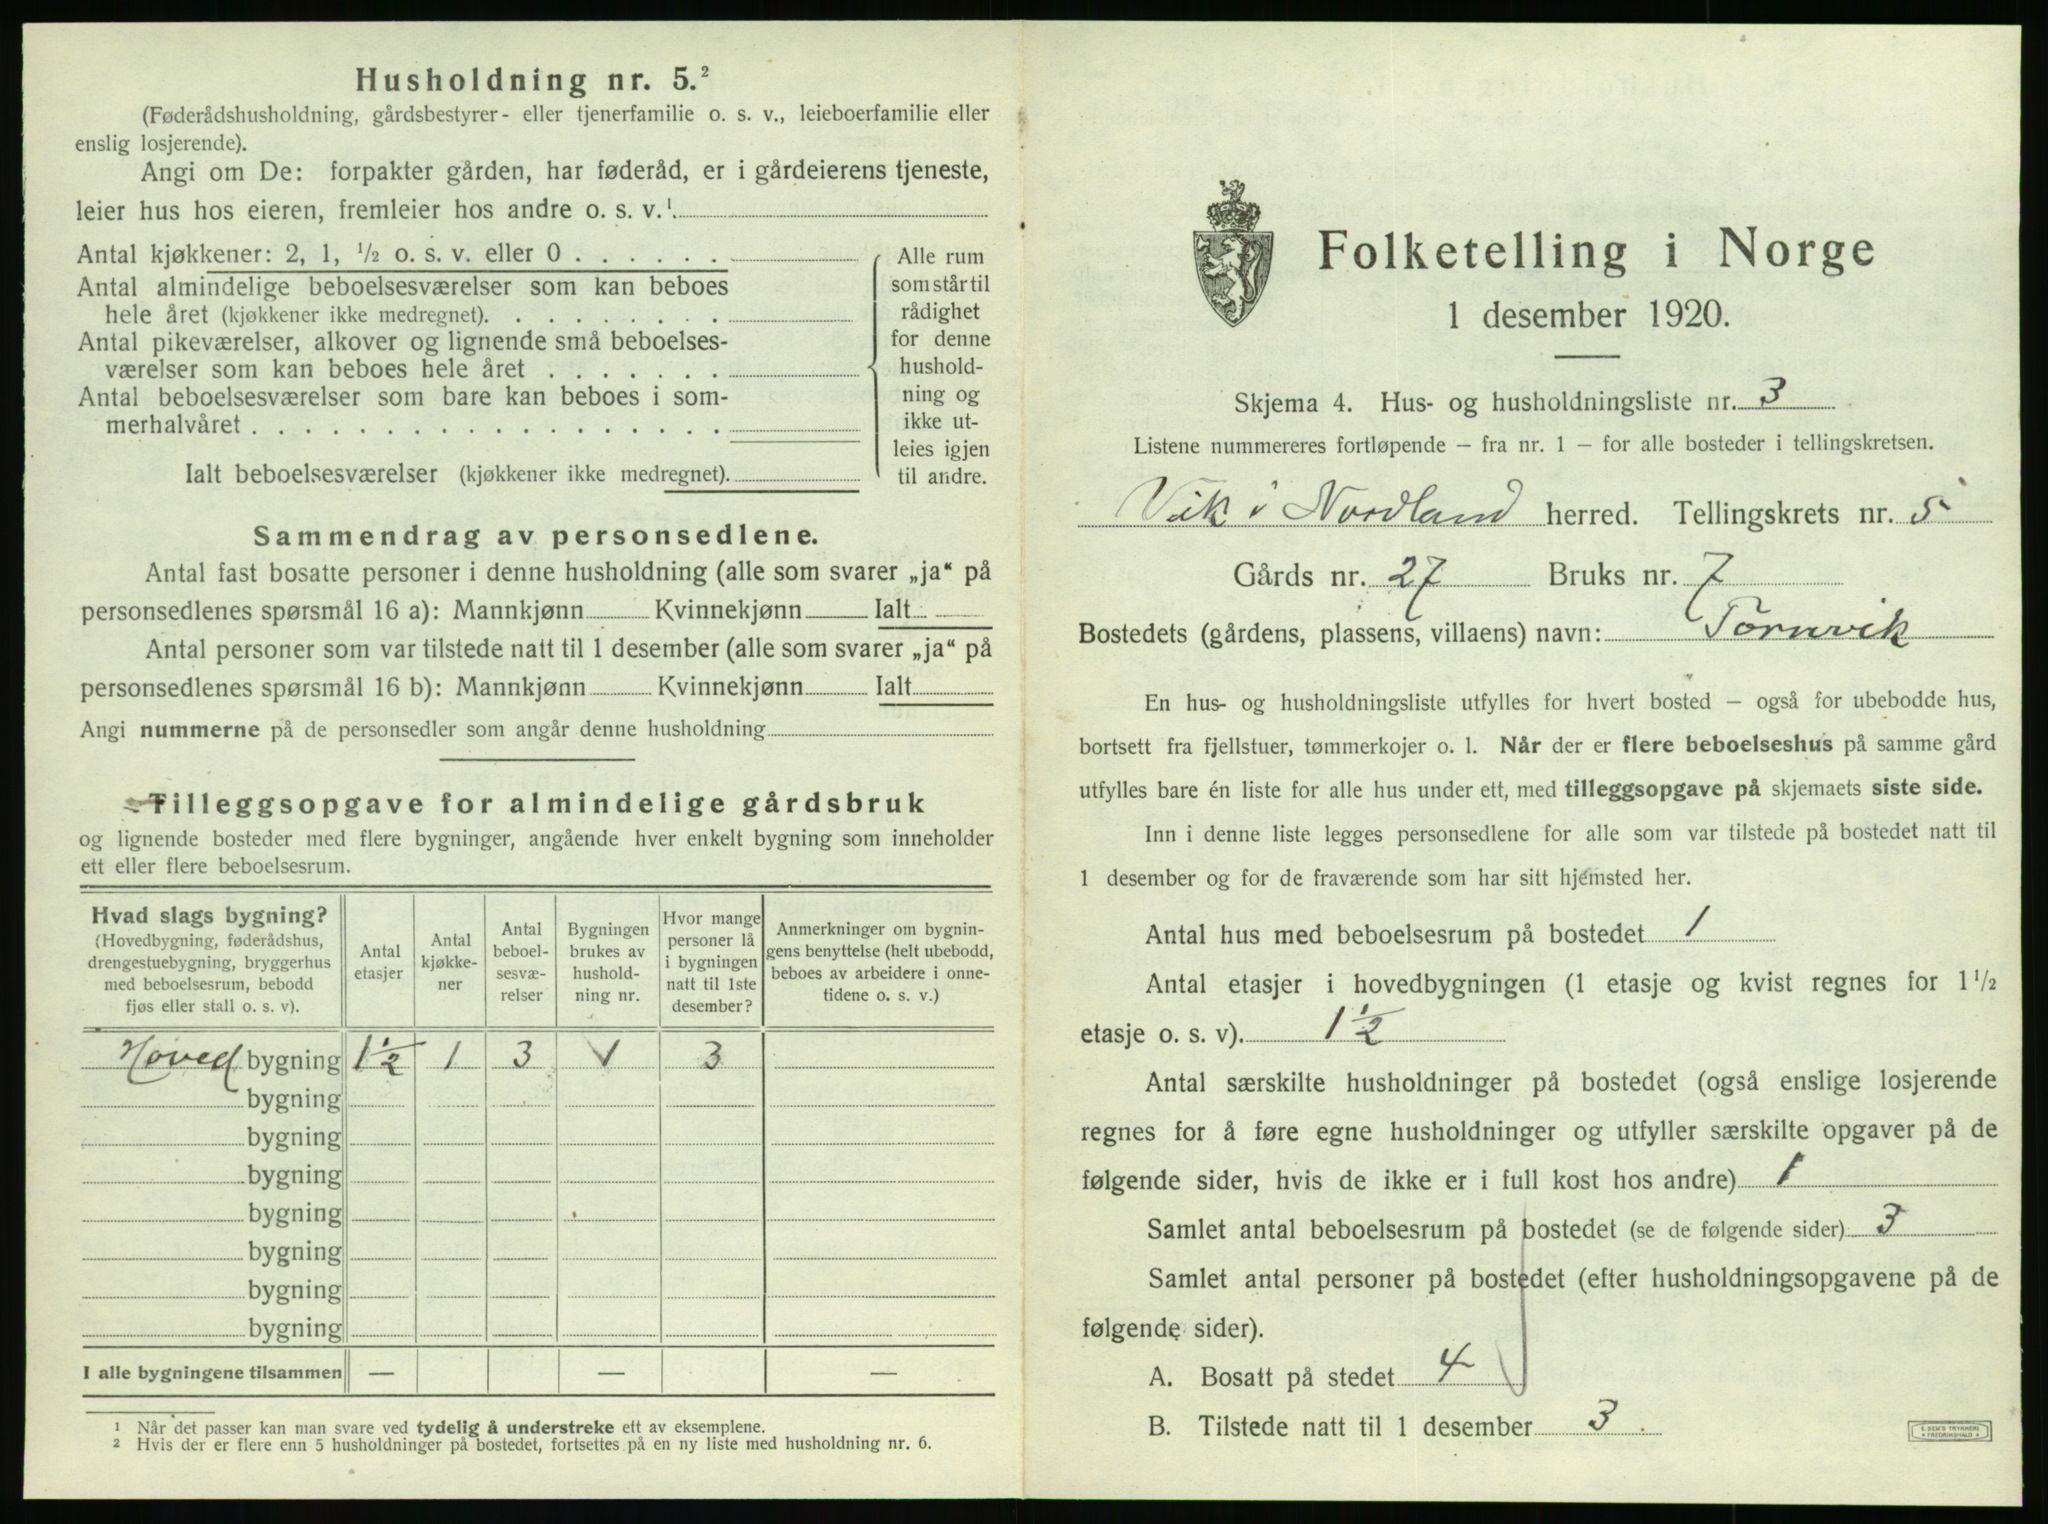 Husholdning nr. 5.²
(Føderådshusholdning, gårdsbestyrer- eller tjenerfamilie o. s. v., leieboerfamilie eller
enslig losjerende).
Angi om De: forpakter gården, har føderåd, er i gårdeierens tjeneste,
leier hus hos eieren, fremleier hos andre o. s. v.¹
Antal kjøkkener: 2, 1, ½ o. s. v. eller 0 . . . . . .
Antal almindelige beboelsesværelser som kan beboes
hele året (kjøkkener ikke medregnet). . . . . . . . .
Antal pikeværelser, alkover og lignende små beboelses-
værelser som kan beboes hele året . . . . . . .
Antal beboelsesværelser som bare kan beboes i som-
merhalvåret . . . . . . . . . . . . . . . . . .
Ialt beboelsesværelser (kjøkkener ikke medregnet).
Alle rum
som står til
rådighet
for denne
hushold-
ning og
ikke ut-
leies igjen
til andre.
Sammendrag av personsedlene.
Antal fast bosatte personer i denne husholdning (alle som svarer „ja“ på
personsedlenes spørsmål 16 a): Mannkjønn Kvinnekjønn Ialt
Antal personer som var tilstede natt til 1 desember (alle som svarer „ja“ på
personsedlenes spørsmål 16 b): Mannkjønn Kvinnekjønn Ialt
Angi nummerne på de personsedler som angår denne husholdning
Tilleggsopgave for almindelige gårdsbruk
og lignende bosteder med flere bygninger, angående hver enkelt bygning som inneholder
ett eller flere beboelsesrum.
Hvad slags bygning?
(Hovedbygning, føderådshus,
drengestuebygning, bryggerhus
med beboelsesrum, bebodd
fjøs eller stall o. s. v).
Antal
etasjer
Antal
kjøkke-
ner
Antal
beboel-
sesvæ-
relser
Bygningen
brukes av
hushold-
ning nr.
Hvor mange
personer lå
i bygningen
natt til 1ste
desember?
Anmerkninger om bygnin-
gens benyttelse (helt ubebodd,
beboes av arbeidere i onne-
tidene o. s. v.)
Hoved bygning 1½ 1 3 1 3
bygning
bygning
bygning
bygning
bygning
bygning
bygning
I alle bygningene tilsammen — — —
¹ Når det passer kan man svare ved tydelig å understreke ett av eksemplene.
² Hvis der er flere enn 5 husholdninger på bostedet, fortsettes på en ny liste med husholdning nr. 6.
Folketelling i Norge
1 desember 1920.
Skjema 4. Hus- og husholdningsliste nr. 3
Listene nummereres fortløpende – fra nr. 1 – for alle bosteder i tellingskretsen.
Vik i Nordland herred. Tellingskrets nr. 5
Gårds nr. 27 Bruks nr. 7
Bostedets (gårdens, plassens, villaens) navn: Tornvik
En hus- og husholdningsliste utfylles for hvert bosted – også for ubebodde hus,
bortsett fra fjellstuer, tømmerkojer o. l. Når der er flere beboelseshus på samme gård
utfylles bare én liste for alle hus under ett, med tilleggsopgave på skjemaets siste side.
Inn i denne liste legges personsedlene for alle som var tilstede på bostedet natt til
1 desember og for de fraværende som har sitt hjemsted her.
Antal hus med beboelsesrum på bostedet 1
Antal etasjer i hovedbygningen (1 etasje og kvist regnes for 1½
etasje o. s. v). 1½
Antal særskilte husholdninger på bostedet (også enslige losjerende
regnes for å føre egne husholdninger og utfyller særskilte opgaver på de
følgende sider, hvis de ikke er i full kost hos andre) 1
Samlet antal beboelsesrum på bostedet (se de følgende sider) 3
Samlet antal personer på bostedet (efter husholdningsopgavene på de
følgende sider).
A. Bosatt på stedet 4
B. Tilstede natt til 1 desember 3
E. SEM'S TRYKKERI
FREDRIKSHALD